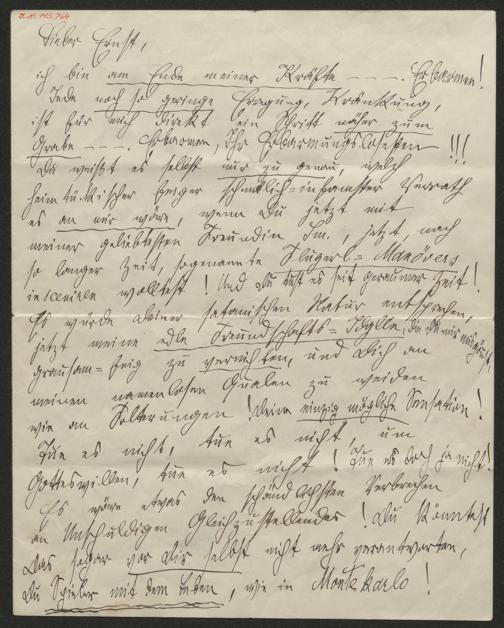 I.N. 115.766
Lieber Ernst,
ich bin am Ende meiner Kräfte – – – . Erbarmen!
Jede noch so geringe Erregung, Kränkung,
ist für mich direkt ein Schritt näher zum
Grabe – – – . Erbarmen, Ihr Erbarmungslosesten !!!
Du weißt es selbst nur zu genau, welch
heimtückischer feiger schmählich-infamster Verrath
es an mir wäre, wenn Du jetzt mit
meiner geliebtesten Freundin jetzt, nach
so langer Zeit, sogenannte Manövers
insceniren wolltest! Und Du tust es seit geraumer Zeit!
Es würde Deiner satanischen Natur entsprechen,
jetzt meine edle Freundschafts-Idylle, die Du mir
grausam-feig zu vernichten, und Dich an
meinen namenlosen Qualen zu weiden
wie an Folterungen! Deine einzig mögliche Sensation!
Tue es nicht, tue es nicht, um
Gotteswillen, tue es nicht! Tue es doch ja nicht!
Es wäre etwas den schändlichsten Verbrechen
an Unschuldigen Gleichzustellendes! Du könntest
Das sogar vor Dir selbst nicht mehr verantworten,
Du Spieler mit dem Leben, wie in Montekarlo!